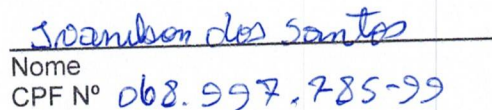 Joanilson dos Santos
Nome
CPF Nº 068.997.785-99